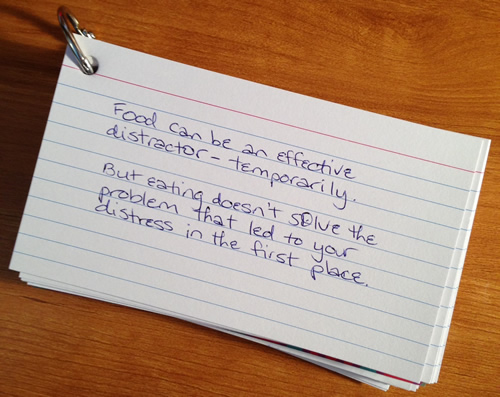 Food can be an effective
distractor - temporarily.
But eating doesn't solve the
problem that led to your
distress in the first place.